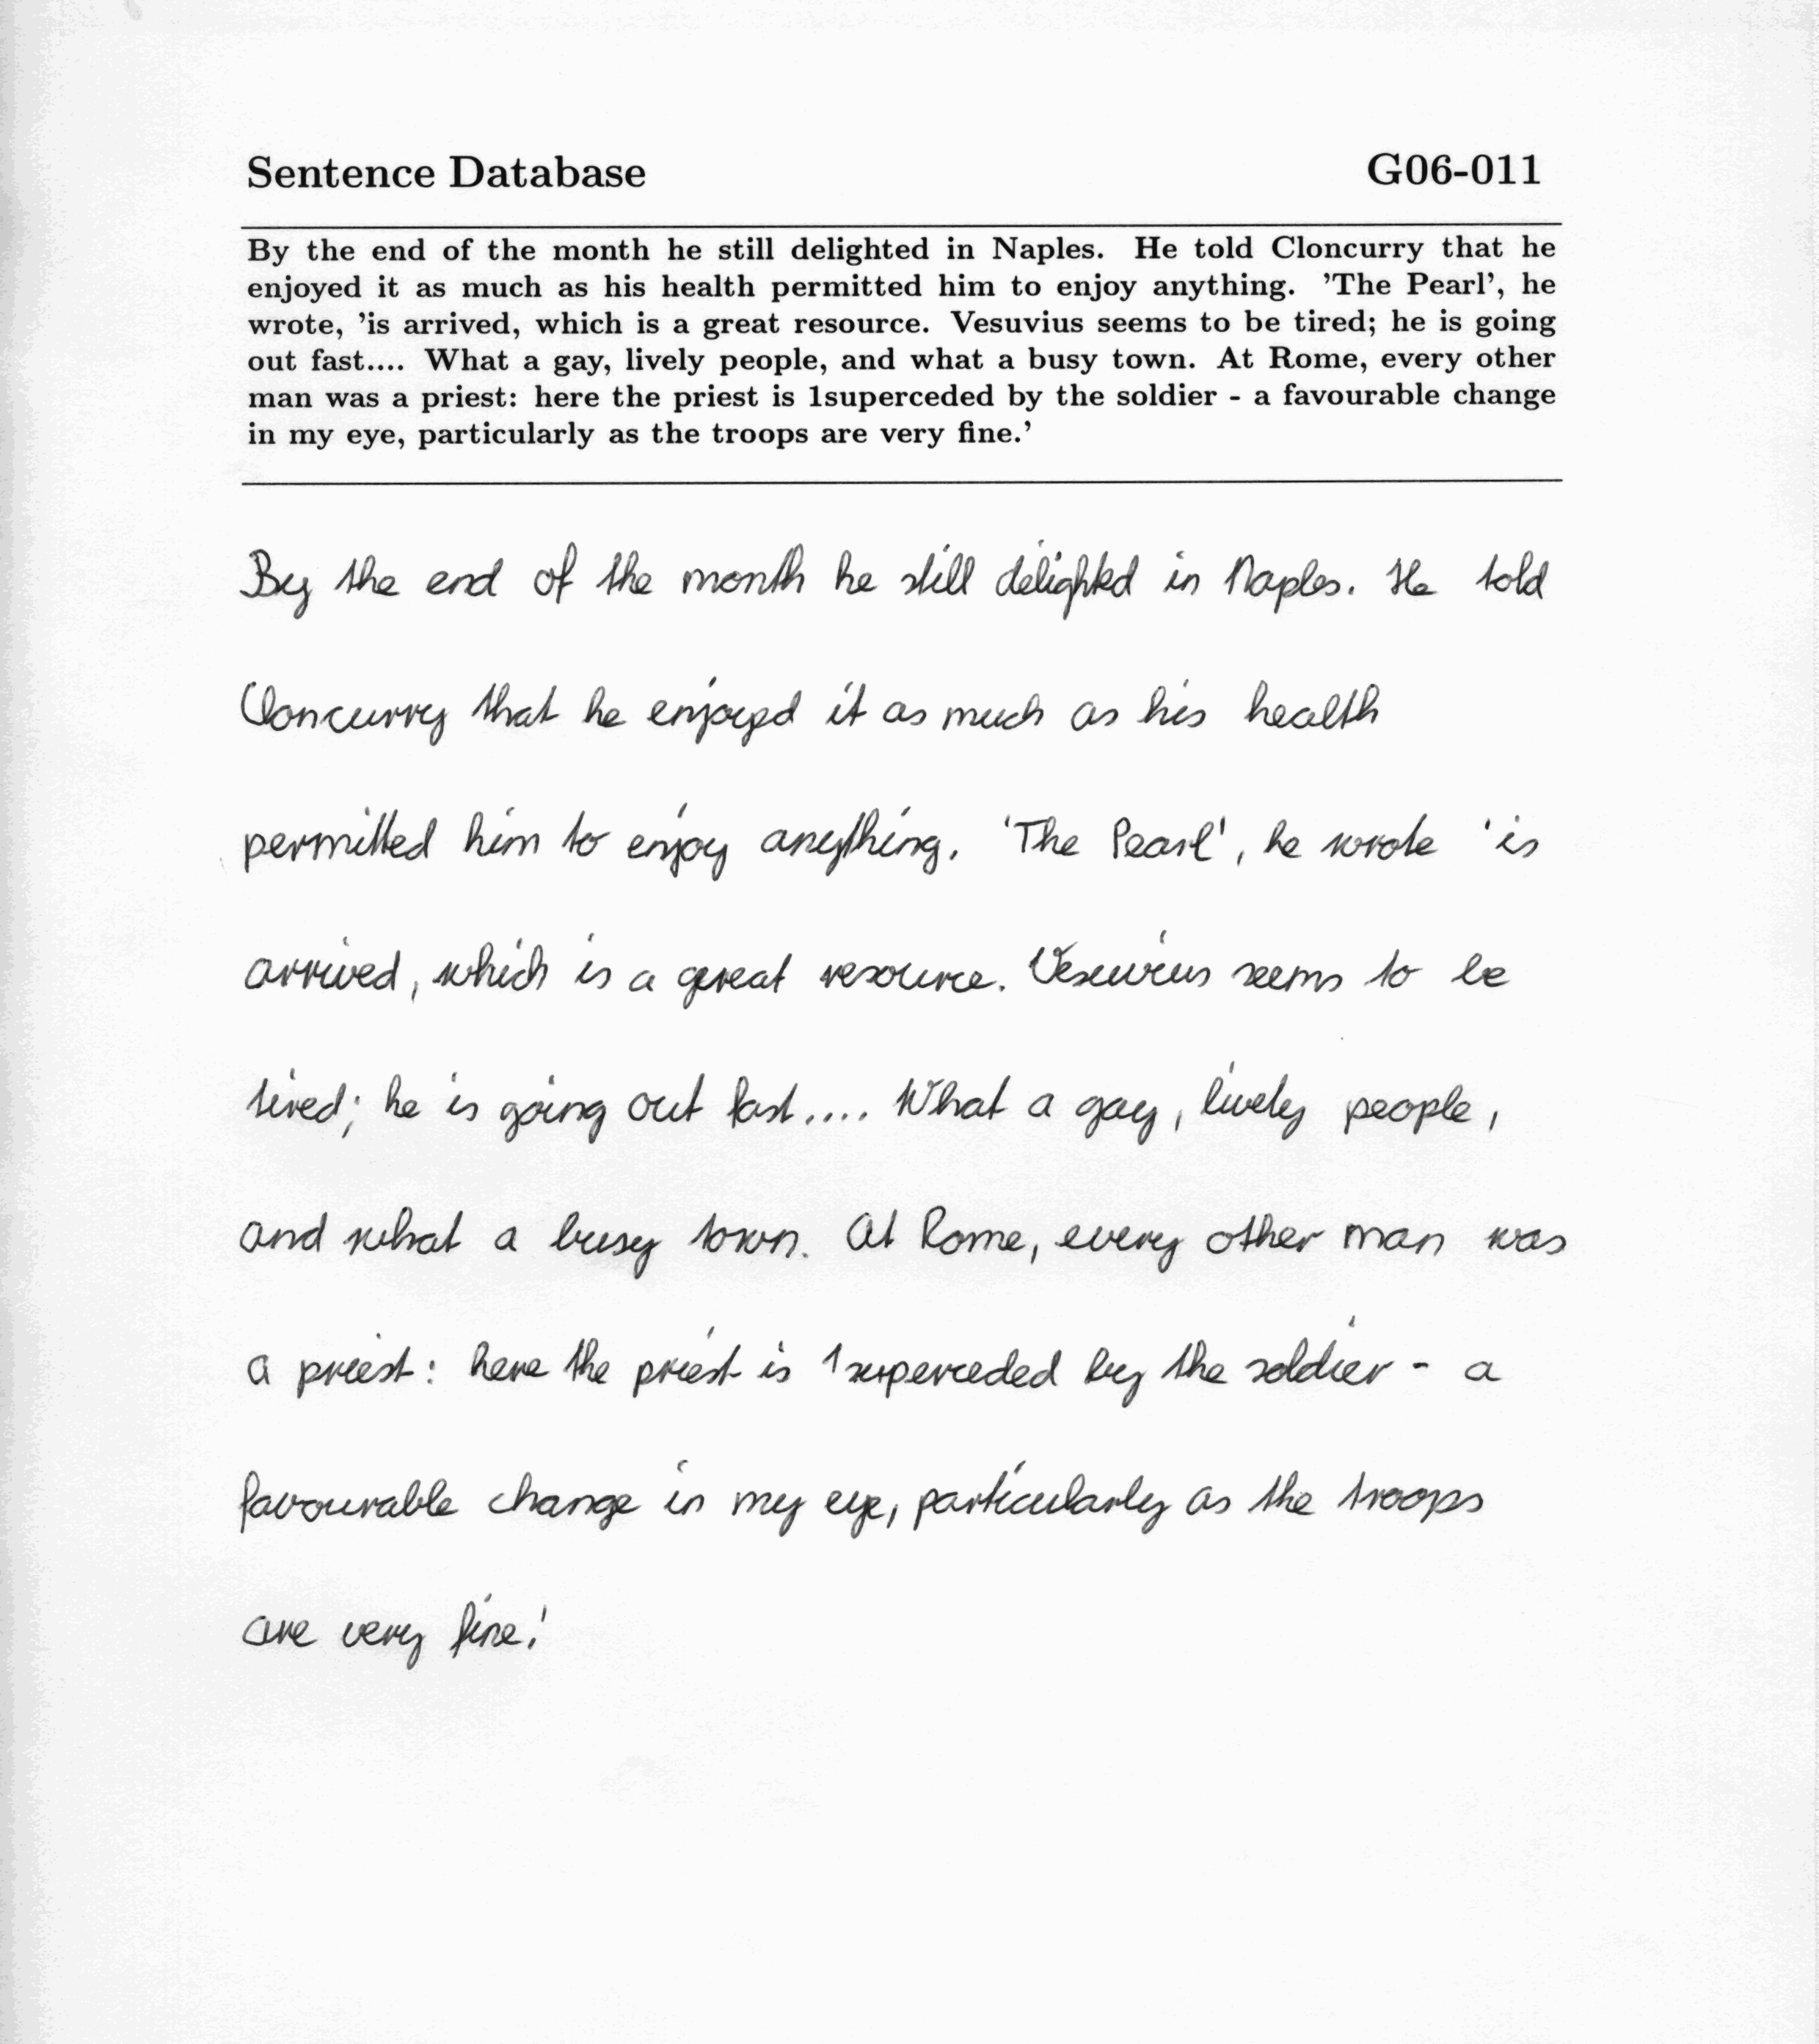 Sentence Database G06-011
By the end of the month he still delighted in Naples. He told Cloncurry that he
enjoyed it as much as his health permitted him to enjoy anything. 'The Pearl', he
wrote, 'is arrived, which is a great resource. Vesuvius seems to be tired; he is going
out fast.... What a gay, lively people, and what a busy town. At Rome, every other
man was a priest: here the priest is 1superceded by the soldier - a favourable change
in my eye, particularly as the troops are very fine.'
By the end of the month he still delighted in Naples. He told
Cloncurry that he enjoyed it as much as his health
permitted him to enjoy anything. 'The Pearl', he wrote 'is
arrived, which is a great resource. Vesuvius seems to be
tired; he is going out fast.... What a gay, lively people,
and what a busy town. At Rome, every other man was
a priest: here the priest is 1superceded by the soldier - a
favourable change in my eye, particularly as the troops
are very fine.'